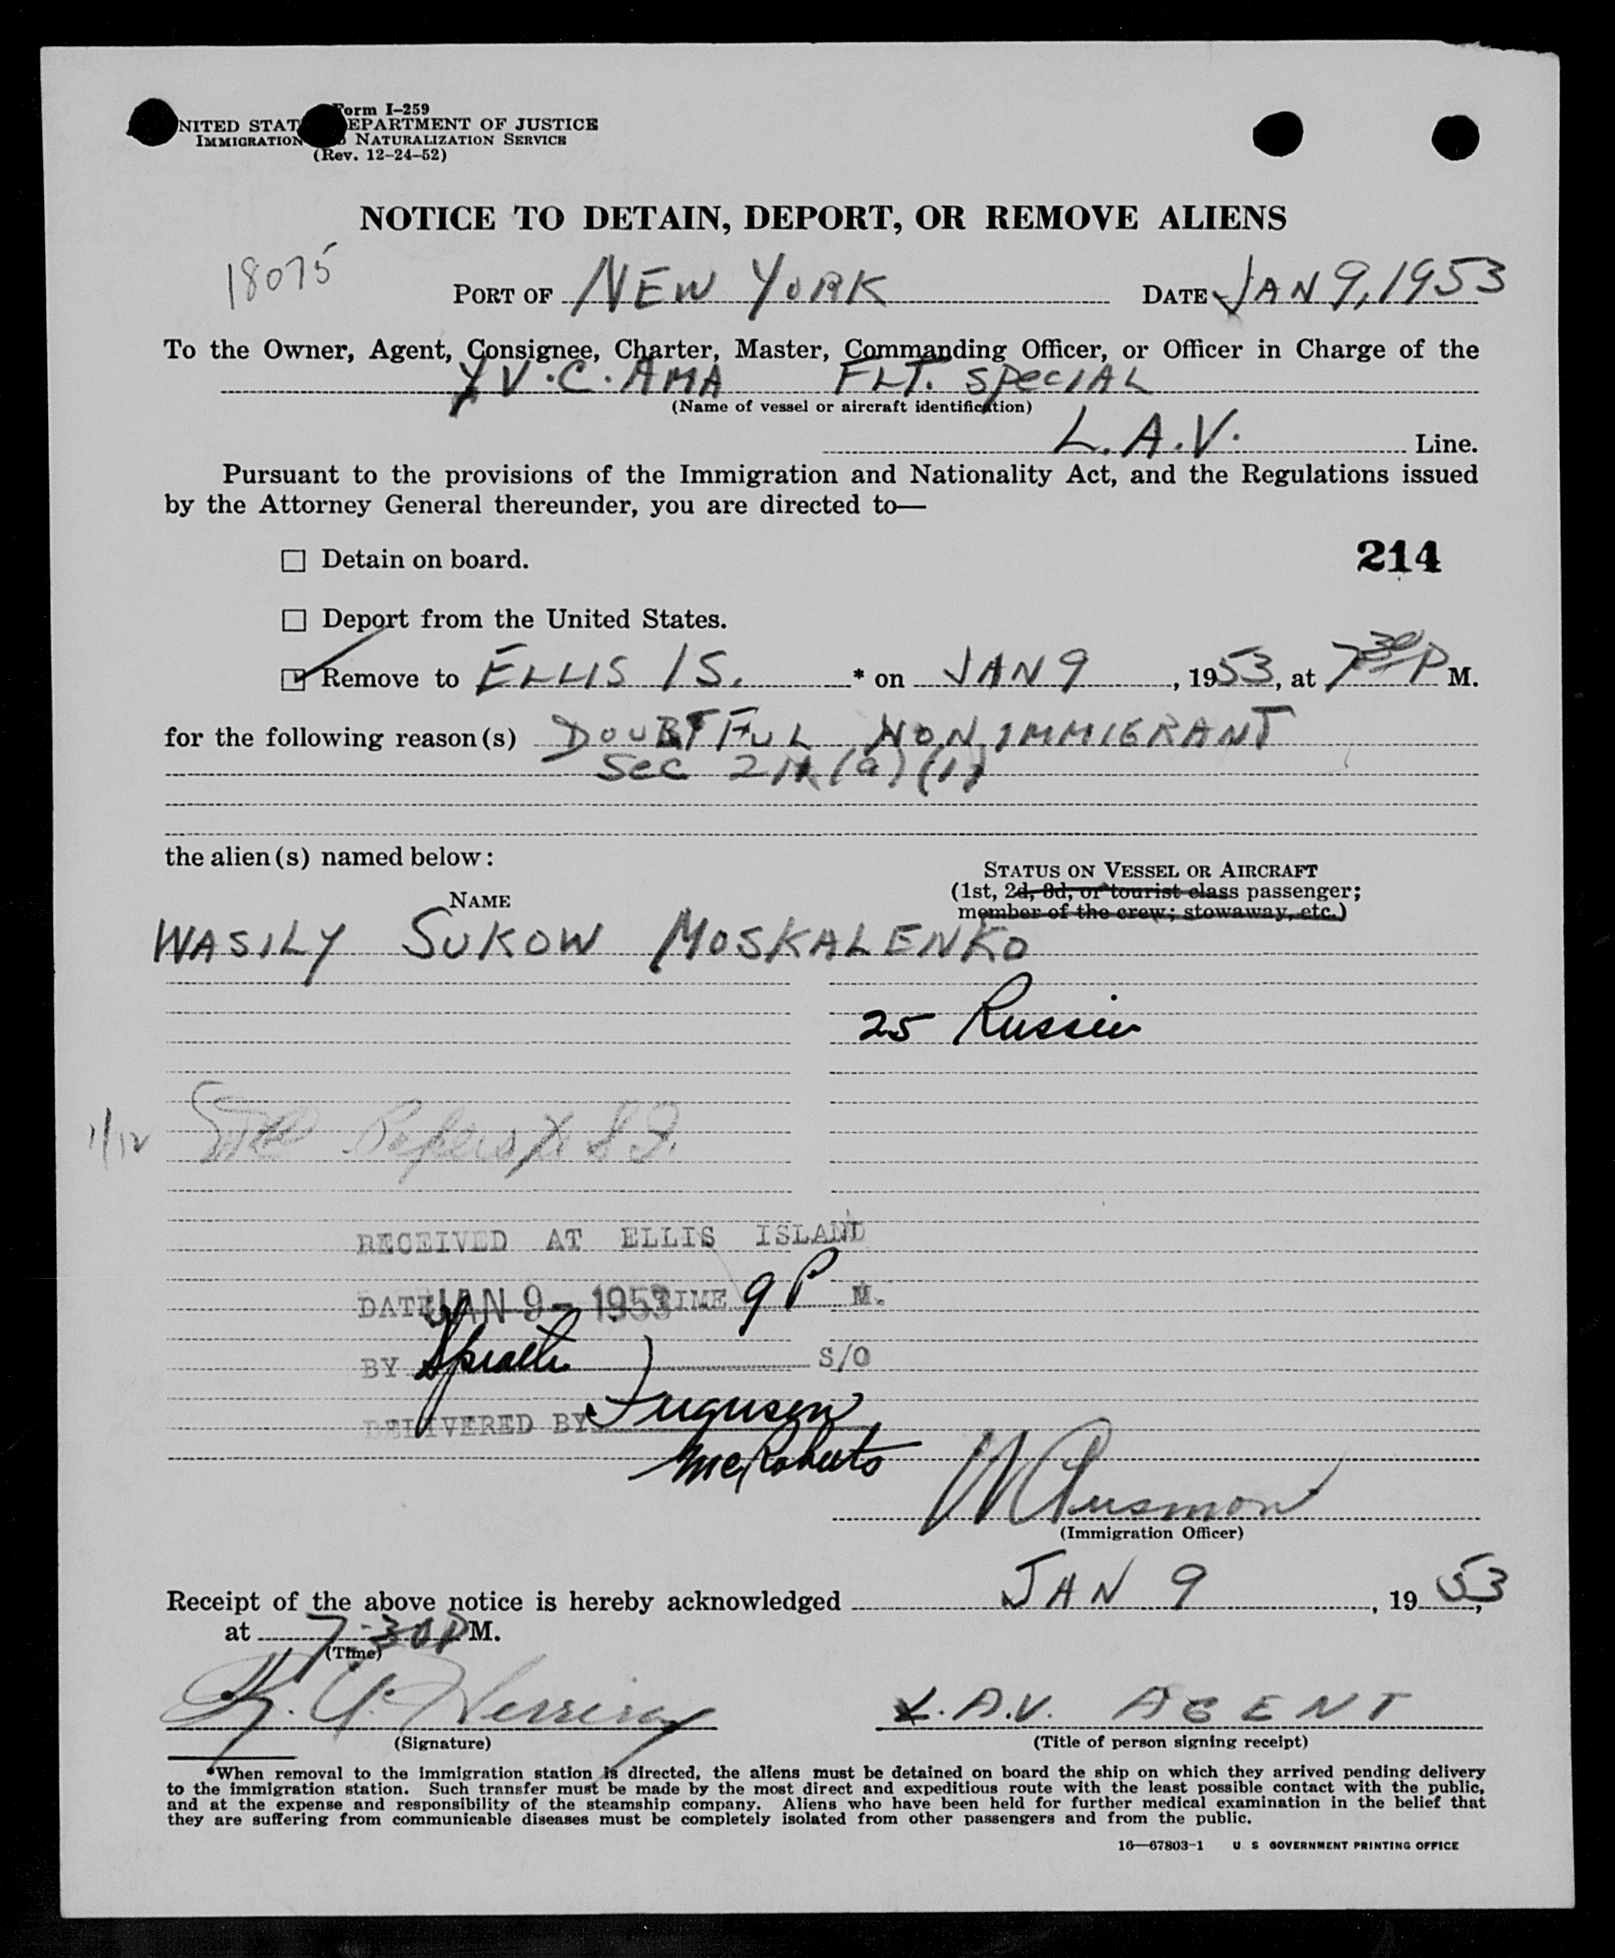 Form I-259
UNITED STATES DEPARTMENT OF JUSTICE
IMMIGRATION AND NATURALIZATION SERVICE
(Rev. 12-24-52)
NOTICE TO DETAIN, DEPORT, OR REMOVE ALIENS
18075
PORT OF NEW YORK DATE JAN 9, 1953
To the Owner, Agent, Consignee, Charter, Master, Commanding Officer, or Officer in Charge of the
YV.C.AMA FLT. SPECIAL
(Name of vessel or aircraft identification)
L.A.V. Line.
Pursuant to the provisions of the Immigration and Nationality Act, and the Regulations issued
by the Attorney General thereunder, you are directed to—
☐ Detain on board.
214
☐ Deport from the United States.
☑ Remove to ELLIS IS. * on JAN 9, 1953, at 7 30 P M.
for the following reason(s) DOUBTFUL NONIMMIGRANT
Sec (a)(1)
the alien(s) named below:
STATUS ON VESSEL OR AIRCRAFT
(1st, 2d, 3d, or tourist class passenger;
member of the crew; stowaway, etc.)
NAME
WASILY SUKOW MOSKALENKO
25 Russia
1/12 Papers S.I.
RECEIVED AT ELLIS ISLAND
DATE JAN 9 - 1953 TIME 9 P M.
BY S/O
DELIVERED BY Ferguson
McRoberts
(Immigration Officer)
Receipt of the above notice is hereby acknowledged JAN 9, 1953,
at 7:30 P M.
(Time)
L.A.V. AGENT
(Signature) (Title of person signing receipt)
*When removal to the immigration station is directed, the aliens must be detained on board the ship on which they arrived pending delivery
to the immigration station. Such transfer must be made by the most direct and expeditious route with the least possible contact with the public,
and at the expense and responsibility of the steamship company. Aliens who have been held for further medical examination in the belief that
they are suffering from communicable diseases must be completely isolated from other passengers and from the public.
16—67803-1 U S GOVERNMENT PRINTING OFFICE